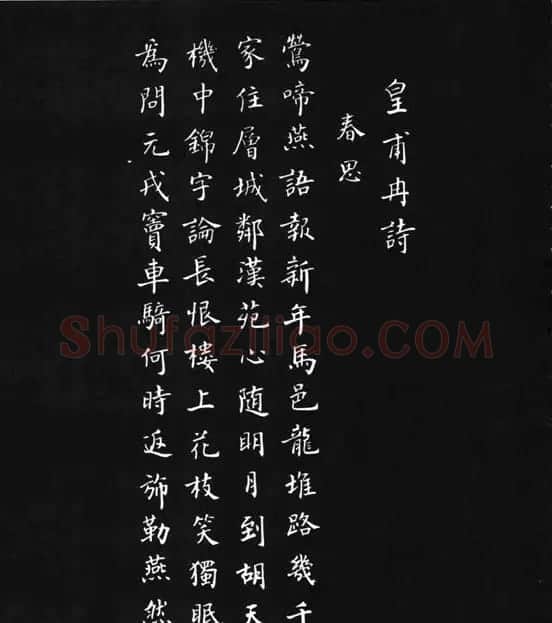 皇甫冉詩
春思
鶯啼燕語報新年馬邑龍堆路幾千
家住層城鄰漢苑心随明月到胡天
機中錦字論長恨樓上花枝笑獨眠
為問元戎竇車騎何時返旆勒燕然
Shufaziliao.COM